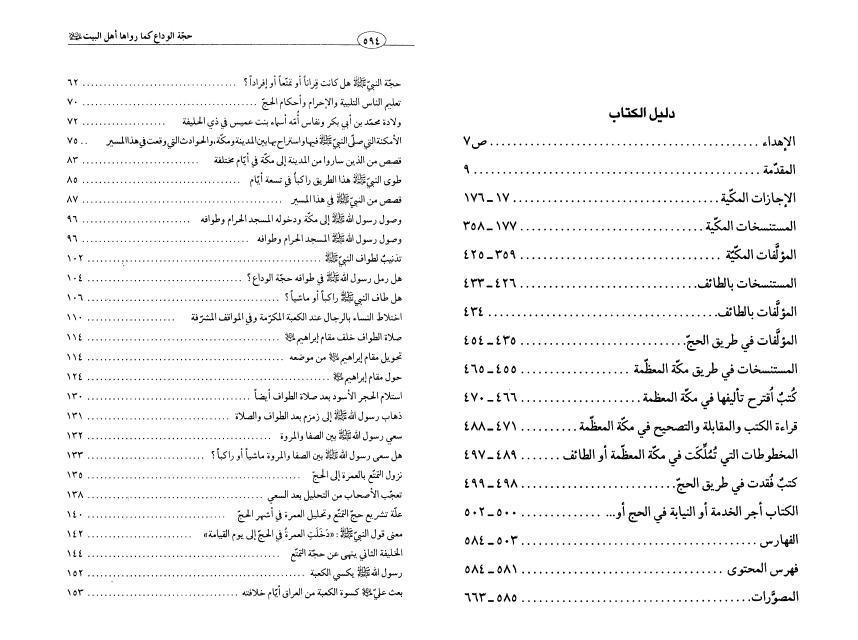 دليل الكتاب
الإهداء ........ ص ٧
المقدّمة ........ ٩
الإجازات المكّية ........ ١٧ ـ ١٧٦
المستنسخات المكّية ........ ١٧٧ ـ ٣٥٨
المؤلَّفات المكّيّة ........ ٣٥٩ ـ ٤٢٥
المستنسخات بالطائف ........ ٤٢٦ ـ ٤٣٣
المؤلَّفات بالطائف ........ ٤٣٤
المؤلَّفات في طريق الحجّ ........ ٤٣٥ ـ ٤٥٤
المستنسخات في طريق مكّة المعظّمة ........ ٤٥٥ ـ ٤٦٥
كُتبٌ اُقترح تأليفها في مكّة المعظمة ........ ٤٦٦ ـ ٤٧٠
قراءة الكتب والمقابلة والتصحيح في مكة المعظّمة ........ ٤٧١ ـ ٤٨٨
المخطوطات التي تُمُلِّكَت في مكّة المعظّمة أو الطائف ........ ٤٨٩ ـ ٤٩٧
كتبٌ فُقدت في طريق الحجّ ........ ٤٩٨ ـ ٤٩٩
الكتاب أجر الخدمة أو النيابة في الحج أو... ........ ٥٠٠ ـ ٥٠٢
الفهارس ........ ٥٠٣ ـ ٥٨٤
فهرس المحتوى ........ ٥٨١ ـ ٥٨٤
المصوَّرات ........ ٥٨٥ ـ ٦٦٣
٥٩٤ حجّة الوداع كما رواها أهل البيت
حجّة النبيّ ﷺ هل كانت قِراناً أو تمتّعاً أو إفراداً؟ ........ ٦٢
تعليم الناس التلبية والإحرام وأحكام الحجّ ........ ٧٠
ولادة محمّد بن أبي بكر ونفاس اُمّه أسماء بنت عميس في ذي الحليفة ........ ٧٢
الأمكنة التي صلّى النبيّ ﷺ فيها واستراح بها بين المدينة ومكّة، والحوادث التي وقعت في هذا المسير .. ٧٥
قصص من الذين ساروا من المدينة إلى مكّة في أيّام مختلفة ........ ٨٣
طوى النبيّ ﷺ هذا الطريق راكباً في تسعة أيّام ........ ٨٥
قصص من النبيّ ﷺ في هذا المسير ........ ٨٧
وصول رسول الله ﷺ إلى مكّة ودخوله المسجد الحرام وطوافه ........ ٩٦
وصول رسول الله ﷺ المسجد الحرام وطوافه ........ ٩٦
تذنيبٌ لطواف النبيّ ﷺ ........ ١٠٢
هل رمل رسول الله ﷺ في طوافه حجّة الوداع؟ ........ ١٠٤
هل طاف النبيّ ﷺ راكباً أو ماشياً؟ ........ ١٠٦
اختلاط النساء بالرجال عند الكعبة المكرّمة وفي المواقف المشرّفة ........ ١١٠
صلاة الطواف خلف مقام إبراهيم ........ ١١٤
تحويل مقام إبراهيم من موضعه ........ ١١٤
حول مقام إبراهيم ........ ١٢٤
استلام الحجر الأسود بعد صلاة الطواف أيضاً ........ ١٣٠
ذهاب رسول الله ﷺ إلى زمزم بعد الطواف والصلاة ........ ١٣١
سعي رسول الله ﷺ بين الصفا والمروة ........ ١٣٢
هل سعى رسول الله ﷺ بين الصفا والمروة ماشياً أو راكباً؟ ........ ١٣٣
نزول التمتّع بالعمرة إلى الحجّ ........ ١٣٥
تعجّب الأصحاب من التحليل بعد السعي ........ ١٣٨
علّة تشريع حجّ التمتّع وتحليل العمرة في أشهر الحجّ ........ ١٤٠
معنى قول النبيّ ﷺ: «دَخَلَتِ العمرةُ في الحجّ إلى يوم القيامة» ........ ١٤٢
الخليفة الثاني ينهى عن حجّة التمتّع ........ ١٤٤
رسول الله ﷺ يكسي الكعبة ........ ١٥٢
بعث عليّ كسوة الكعبة من العراق أيّام خلافته ........ ١٥٣